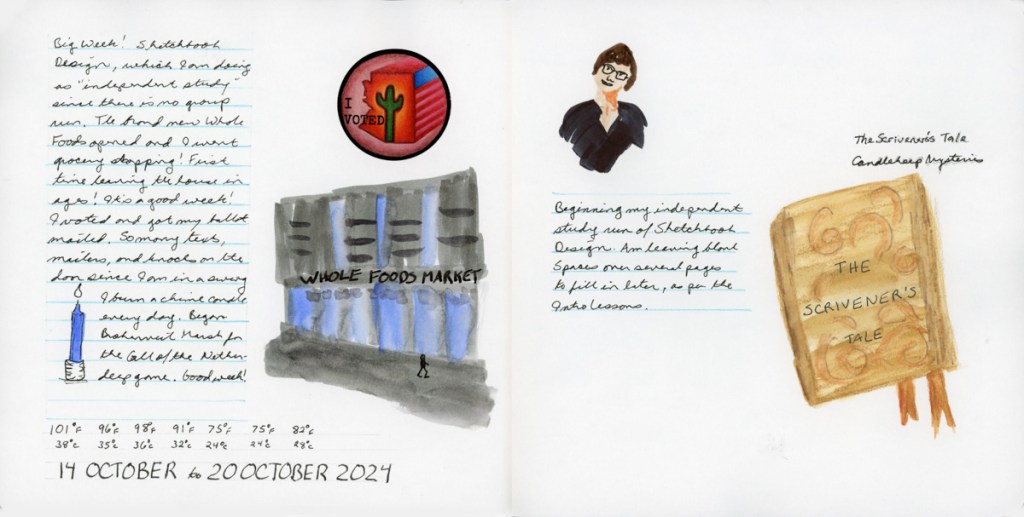 Big Week! Sketchbook
Design, which I am doing
as "independent study"
since there is no group
run. The brand new Whole
Foods opened and I went
grocery shopping! First
time leaving the house in
ages! It's a good week!
I voted and got my ballot
mailed. So many texts,
mailers, and knocks on the
door since I am in a swing
I burn a chime candle
every day. Began
Marsh for
the Call of the Nether-
deep game. Good week!
I
VOTED
WHOLE FOODS MARKET
101°F 96°F 98°F 91°F 75°F 75°F 82°F
38°C 35°C 36°C 32°C 24°C 24°C 28°C
14 OCTOBER to 20 OCTOBER 2024
Beginning my independent
study run of Sketchbook
Design. Am leaving blank
spaces over several pages
to fill in later, as per the
Intro lessons.
The Scrivener's Tale
Candlekeep Mysteries
THE
SCRIVENER'S
TALE